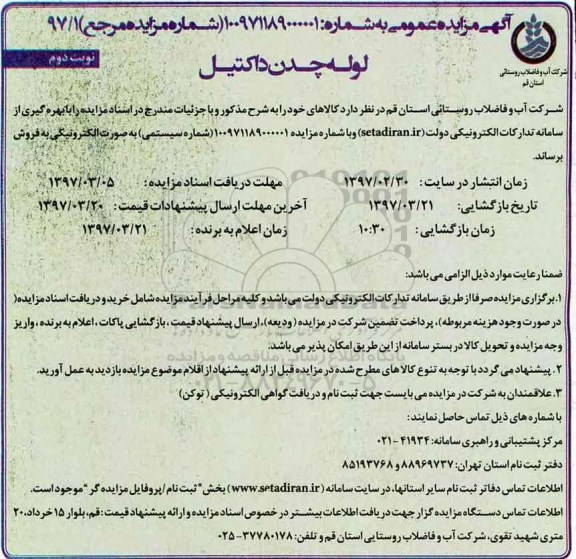 آگهی مزایده عمومی به شماره: ۱۰۰۹۷۱۱۸۹۰۰۰۰۰۱ (شماره مزایده مرجع ۹۷/۱)
نوبت دوم
لوله چدن داکتیل
شرکت آب و فاضلاب روستائی
استان قم
شرکت آب و فاضلاب روستائی استان قم در نظر دارد کالاهای خود را به شرح مذکور و با جزئیات مندرج در اسناد مزایده را با بهره گیری از
سامانه تدارکات الکترونیکی دولت (setadiran.ir) و با شماره مزایده ۱۰۰۹۷۱۱۸۹۰۰۰۰۰۱ (شماره سیستمی) به صورت الکترونیکی به فروش
برساند.
زمان انتشار در سایت: ۱۳۹۷/۰۲/۳۰ مهلت دریافت اسناد مزایده: ۱۳۹۷/۰۳/۰۵
تاریخ بازگشایی: ۱۳۹۷/۰۳/۲۱ آخرین مهلت ارسال پیشنهادات قیمت: ۱۳۹۷/۰۳/۲۰
زمان بازگشایی: ۱۰:۳۰ زمان اعلام به برنده: ۱۳۹۷/۰۳/۲۱
ضمنا رعایت موارد ذیل الزامی می باشد:
۱. برگزاری مزایده صرفا از طریق سامانه تدارکات الکترونیکی دولت می باشد و کلیه مراحل فرآیند مزایده شامل خرید و دریافت اسناد مزایده(
در صورت وجود هزینه مربوطه)، پرداخت تضمین شرکت در مزایده (ودیعه)، ارسال پیشنهاد قیمت، بازگشایی پاکات، اعلام به برنده، واریز
وجه مزایده و تحویل کالا در بستر سامانه از این طریق امکان پذیر می باشد.
۲. پیشنهاد می گردد با توجه به تنوع کالاهای مطرح شده در مزایده قبل از ارائه پیشنهاد از اقلام موضوع مزایده بازدید به عمل آورید.
۳. علاقمندان به شرکت در مزایده می بایست جهت ثبت نام و دریافت گواهی الکترونیکی (توکن)
با شماره های ذیل تماس حاصل نمایند:
مرکز پشتیبانی و راهبری سامانه: ۴۱۹۳۴-۰۲۱
دفتر ثبت نام استان تهران: ۸۸۹۶۹۷۳۷ و ۸۵۱۹۳۷۶۸
اطلاعات تماس دفاتر ثبت نام سایر استانها، در سایت سامانه (www.setadiran.ir) بخش "ثبت نام / پروفایل مزایده گر" موجود است.
اطلاعات تماس دستگاه مزایده گزار جهت دریافت اطلاعات بیشتر در خصوص اسناد مزایده و ارائه پیشنهاد قیمت: قم، بلوار ۱۵ خرداد، ۲۰
متری شهید تقوی، شرکت آب و فاضلاب روستایی استان قم و تلفن: ۳۷۷۸۰۱۷۸-۰۲۵
پایگاه اطلاع رسانی مناقصه و مزایده
۰۲۱-۸۸۳۴۹۶۷۰-۵